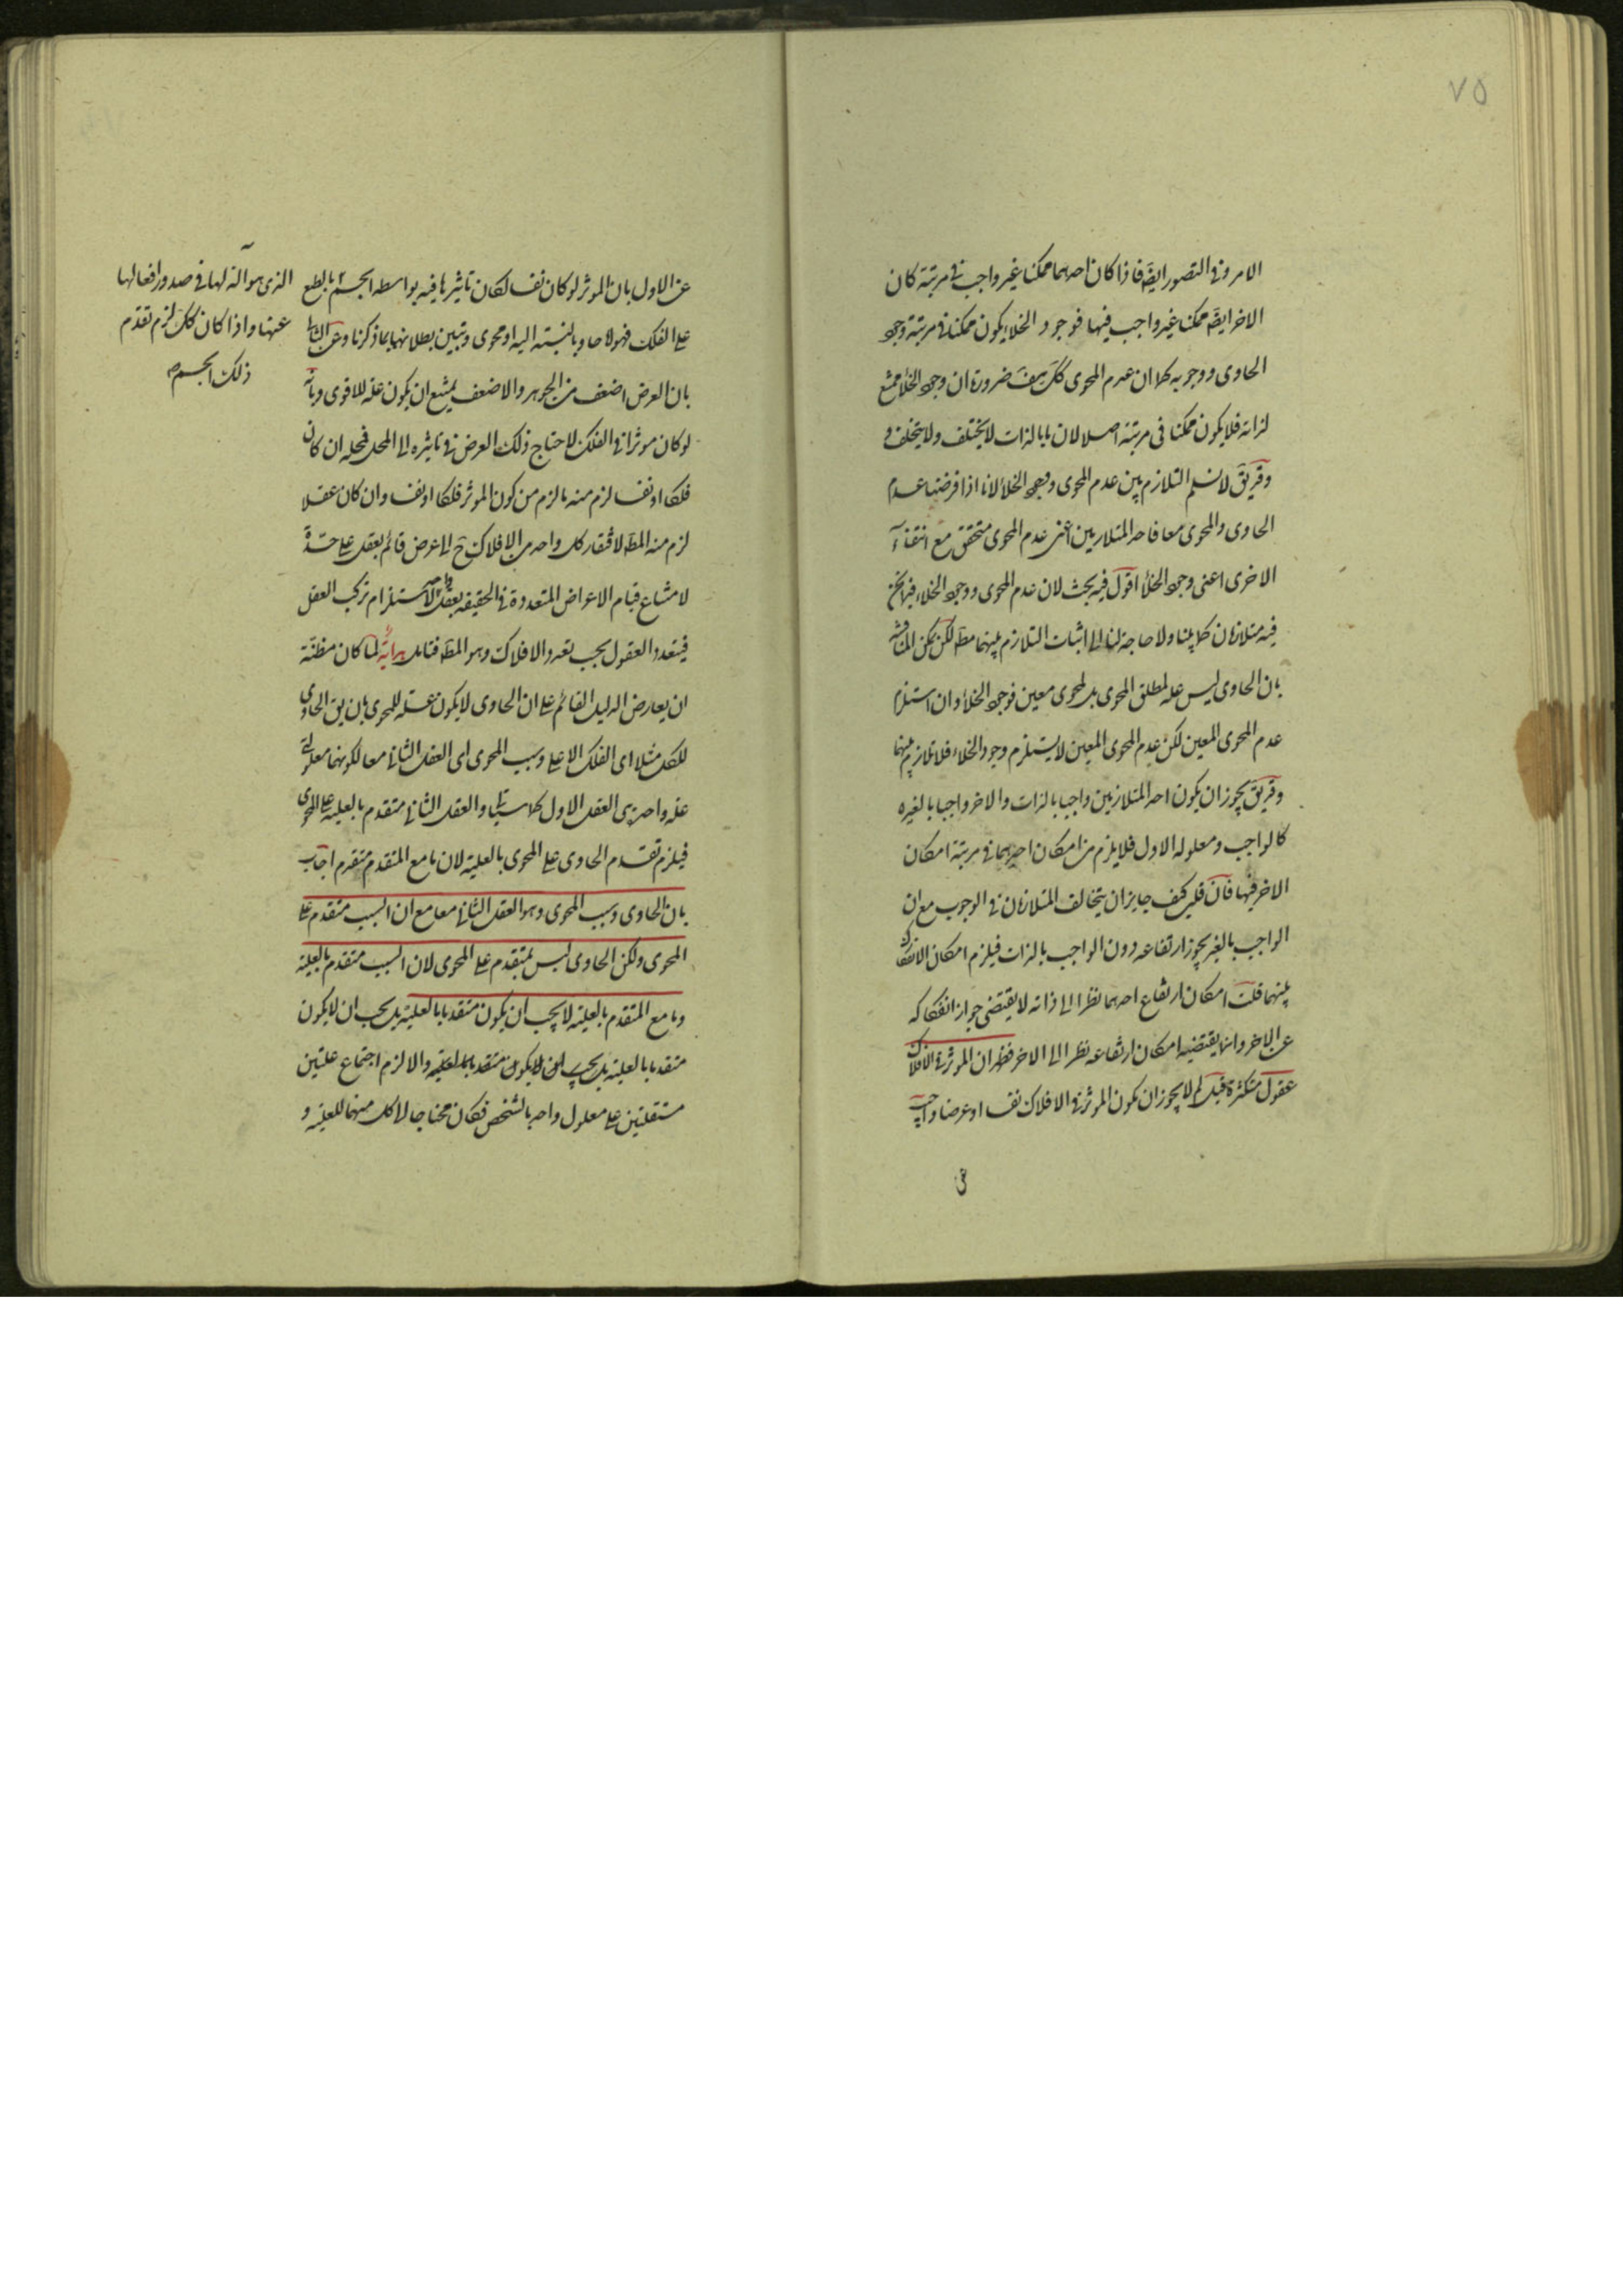 ٧٥
الامر وفى التصور ايضً فاذا كان احدهما ممكنا غير واجب فى مرتبة كان
الاخر ايضً ممكنا غير واجب فيها فوجود الخلاء يكون ممكنا فى مرتبة وجود
الحاوى ووجوبه كما ان عدم المحوى كك هف ضرورة ان وجود الخلأ ممتنع
لذاته فلا يكون ممكنا فى مرتبة اصلا لان ما بالذات لا يختلف ولا يتخلف و
وقد يق لا نسلم التلازم بين عدم المحوى ووجود الخلأ لانا اذا فرضنا عدم
الحاوى والمحوى معا فاحد المتلازمين اعنى عدم المحوى متحقق مع انتفاء
الاخرى اعنى وجود الخلأ اقول فيه بحث لان عدم المحوى ووجود الخلاء فيما نحن
فيه متلازمان كما بينا ولا حاجة لنا الى اثبات التلازم بينهما مطَ لكن يمكن المناقشة
بان الحاوى ليس علة لمطلق المحوى بل لمحوى معين فوجود الخلأ وان استلزم
عدم المحوى المعين لكن عدم المحوى المعين لا يستلزم وجود الخلاء فلا تلازم بينهما
وقد يق يجوز ان يكون احد المتلازمين واجبا بالذات والاخر واجبا بالغيره
كالواجب ومعلوله الاول فلا يلزم من امكان احدهما فى مرتبة امكان
الاخر فيها فان قلت كيف جايز ان يتخالف المتلازمان فى الوجوب مع ان
الواجب بالغير يجوز ارتفاعه دون الواجب بالذات فيلزم امكان الانفكاك
بينهما قلت امكان ارتفاع احدهما نظرا الى ذاته لا يقتضى جواز انفكاكه
عن الاخر وانما يقتضيه امكان ارتفاعه نظرا الى الاخر فظهر ان الموثر فى الافلاك
عقول متكثرة قيل لم لا يجوز ان يكون الموثر فى الافلاك نفسا او عرضا واجيب
عن الاول بان الموثر لو كان نفسا لكان تاثيرها فيه بواسطة الجسم بالطبع
على الفلك فهو لا حاو بالنسبة اليه او محوى وتبين بطلانهما بما ذكرنا وعن الثانى
بان العرض اضعف من الجوهر والاضعف يمتنع ان يكون علة للاقوى وبانه
لو كان موثرا فى الفلك لاحتاج ذلك العرض فى تاثيره الى المحل فمحله ان كان
فلكا او نفسا لزم منه ما لزم من كون الموثر فلكا او نفسا وان كان عقلا
لزم منه المطَ لافتقار كل واحد من الافلاك ح الى عرض قائم بعقل على حدّة
لامتناع قيام الاعراض المتعددة فى الحقيقة بعقل واحد لاستلزام تركب العقل
فيتعدد العقول بحسب تعدد الافلاك وهو المطَ فتامل هدايةٌ لما كان مظنة
ان يعارض الدليل القائم على ان الحاوى لا يكون علة للمحوى بان يق الحاوى
للكل مثلا اى الفلك الاعلى وسبب المحوى اى العقل الثانى معا لكونهما معلولى
علة واحدة هى العقل الاول كما سياتى والعقل الثانى متقدم بالعلية على المحوى
فيلزم تقدم الحاوى على المحوى بالعلية لان ما مع المتقدم متقدم اجاب
بان الحاوى وسبب المحوى وهو العقل الثانى معا مع ان السبب متقدم على
المحوى ولكن الحاوى ليس بمتقدم على المحوى لان السبب متقدم بالعلية
وما مع المتقدم بالعلية لا يجب ان يكون متقدما بالعلية بل يجب ان لا يكون
متقدما بالعلية بل يجب ان لا يكون متقدما بالعلية والا لزم اجتماع علتين
مستقلتين على معلول واحد بالشخص فكان محتاجا الى كل منهما للعلية و
الذى هو آلة لها فى صدور افعالها
عنها واذا كان كك لزم تقدم
ذلك الجسم